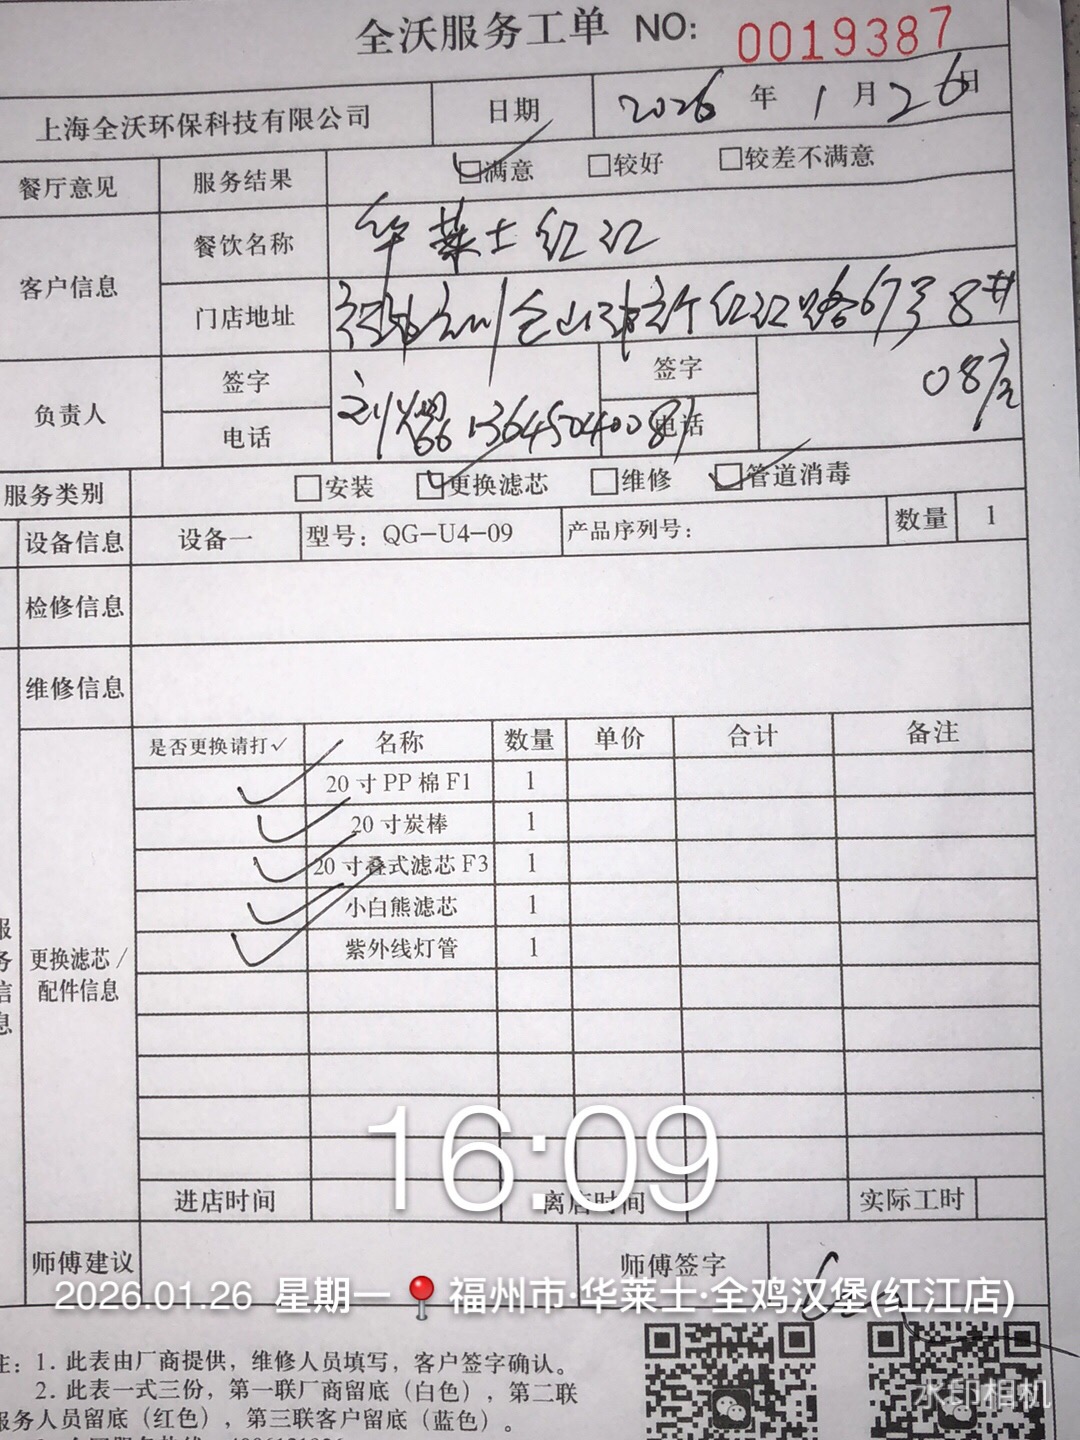 全沃服务工单 NO: 0019387
上海全沃环保科技有限公司 日期 2026 年 1 月 26 日
餐厅意见 服务结果 ☑满意 □较好 □较差不满意
客户信息 餐饮名称 华莱士红江
门店地址 仓山 红江路67号8#
08店
负责人 签字 刘 签字
电话 13645040081 电话
服务类别 □安装 ☑更换滤芯 □维修 ☑管道消毒
设备信息 设备一 型号：QG-U4-09 产品序列号： 数量 1
检修信息
维修信息
是否更换请打✓ 名称 数量 单价 合计 备注
✓ 20寸PP棉F1 1
✓ 20寸炭棒 1
✓ 20寸叠式滤芯F3 1
✓ 小白熊滤芯 1
✓ 紫外线灯管 1
服务信息
更换滤芯/
配件信息
16:09
进店时间 离店时间 实际工时
师傅建议 师傅签字
2026.01.26 星期一 福州市·华莱士·全鸡汉堡(红江店)
注：1. 此表由厂商提供，维修人员填写，客户签字确认。
2. 此表一式三份，第一联厂商留底（白色），第二联
服务人员留底（红色），第三联客户留底（蓝色）。
水印相机